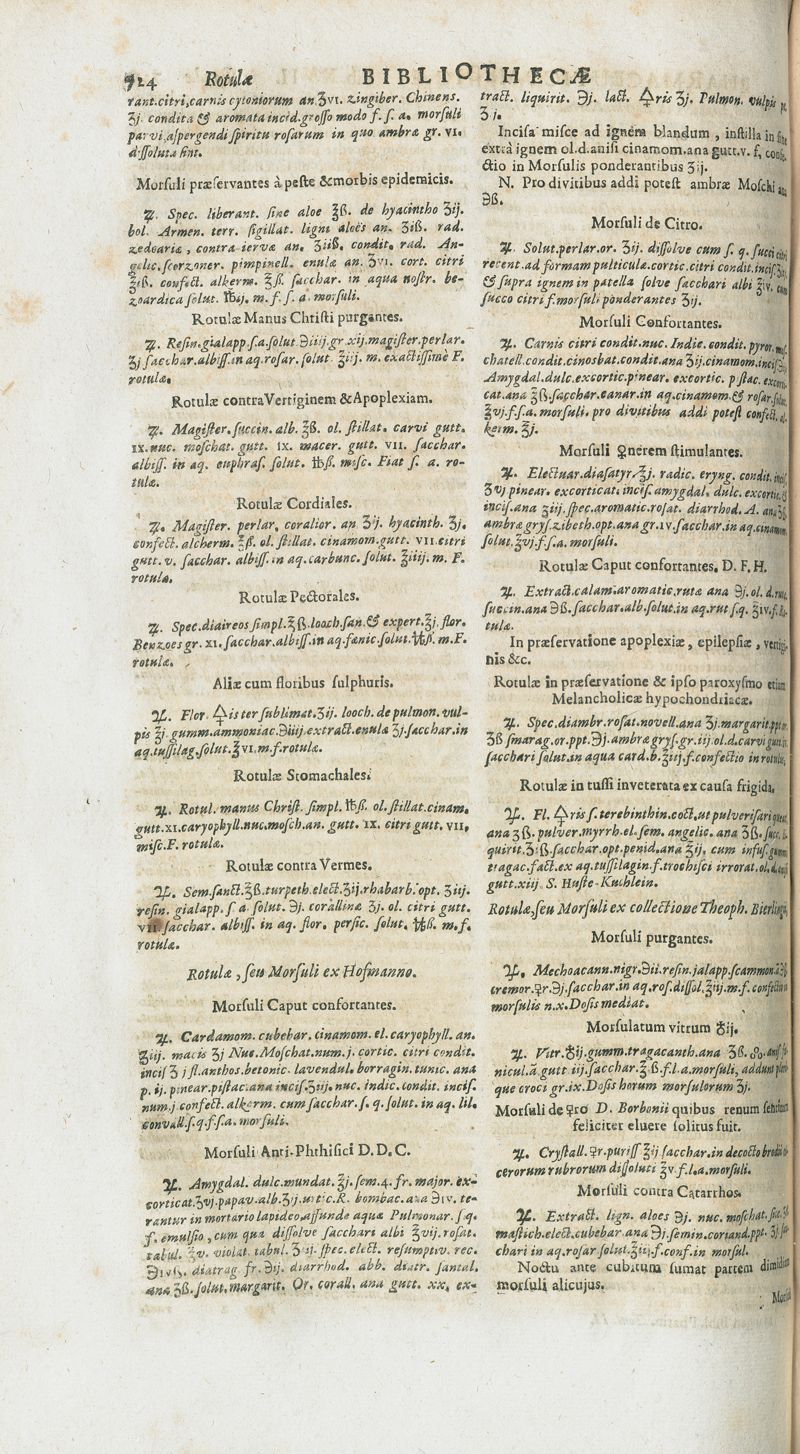 924 Rotulæ BIBLIOTHECÆ
rant.citri,carnis cytoniorum an.ʒvi. zingiber. Chinens.
ʒj. condita & aromata incid.grosso modo f. s. a. morsuli
parvi aspergendi spiritu rosarum in quo ambra gr. vi.
dissoluta sint.
Morsuli præservantes à peste &morbis epidemicis.
℞. Spec. liberant. sine aloe ℥ß. de hyacintho ʒij.
bol. Armen. terr. sigillat. ligni aloës an. ʒiß. rad.
zedoariæ, contra-ierva an. ʒiiß. condit. rad. An-
gelic. scorzoner. pimpinell. enulæ an. ʒvi. cort. citri
℥iß. confect. alkerm. ℥ß. sacchar. in aqua nostr. be-
zoardica solut. ℔ij. m. f. s. a. morsuli.
Rotulæ Manus Christi purgantes.
℞. Resin.gialapp.s.a.solut ℈iiij.gr.xij.magister.perlar.
ʒj sacchar.albiss.in aq.rosar. solut. ℥iij. m. exactissimè F.
rotulæ.
Rotulæ contra Vertiginem & Apoplexiam.
℞. Magister. succin. alb. ℥ß. ol. stillat. carvi gutt.
ix.nuc. moschat. gutt. ix. macer. gutt. vii. sacchar.
albiss. in aq. euphras. solut. ℔ß. misc. Fiat s. a. ro-
tulæ.
Rotulæ Cordiales.
℞. Magister. perlar, coralior. an ʒij. hyacinth. ʒj.
confect. alcherm. ℥ß. ol. stillat. cinamom.gutt. vii.citri
gutt. v. sacchar. albiss. in aq.carbunc. solut. ℥iiij. m. F.
rotulæ.
Rotulæ Pectorales.
℞. Spec.diaireos simpl.℥ß.looch.san.& expert.℥j. flor.
Benzoes gr. xi. sacchar.albiss.in aq.fænic.solut.℔ß. m.F.
rotulæ.
Aliæ cum floribus sulphuris.
℞. Flor. 🜍is ter sublimat.ʒij. looch. de pulmon. vul-
pis ℥j. gumm.ammoniac.℈iiij extract.enulæ ʒj.sacchar.in
aq.tussilag.solut.℥vi.m.f.rotulæ.
Rotulæ Stomachales.
℞. Rotul. manus Christ. simpl. ℔ß. ol.stillat.cinam.
gutt.xi.caryophyll.nuc.mosch.an. gutt. ix. citri gutt. vii,
misc.F. rotulæ.
Rotulæ contra Vermes.
℞. Sem.sanct.℥ß.turpeth.elect.ʒij.rhabarb. opt. ʒiij.
resin. gialapp. s a solut. ℈j. corallinæ ʒj. ol. citri gutt.
vii sacchar. albiss. in aq. flor. persic. solut. ℔ß. m.f.
rotulæ.
Rotulæ, seu Morsuli ex Hofmanno.
Morsuli Caput confortantes.
℞. Cardamom. cubebar. cinamom. el. caryophyll. an.
℥iij. macis ʒj Nuc. Moschat.num.j. cortic. citri condit.
incis ʒ j fl.anthos.betonic. lavendul. borragin. tunic. ana
p. ij. pinear.pistac.ana incis.ʒiij. nuc. indic. condit. incis.
num.j confect. alkerm. cum sacchar. s. q. solut. in aq. lil.
convall.s.q.f.s.a. morsuli.
Morsuli Anti-Phthisici D. D. C.
℞. Amygdal. dulc.mundat. ℥j. sem. 4. fr. major. ex-
corticat.ʒvj.papav.alb.ʒij.urtic.R. bombac. ana ℈iv. te-
rantur in mortario lapideo affunde aquæ Pulmonar. s.q.
f. emulsio, cum qua dissolve sacchari albi ℥vij.rosat.
tabul. ℥v. violat. tabul. ʒij. spec. elect. resumptiv. rec.
℈ivß. diatrag fr. ℈ij. diarrhod. abb. diatr. santal.
ana ʒß. solut. margarit. Or. corall. ana gutt. xx. ex-
tract. liquirit. ℈j. lact. 🜍ris ʒj. Pulmon. vulpis
ʒ j.
Incisa misce ad ignem blandum, instilla in fine
extra ignem ol.d.anisi cinamom.ana gutt.v. f.
ctio in Morsulis ponderantibus ʒij.
N. Pro divitibus addi potest ambræ Moschi
℈ß.
Morsuli de Citro.
℞. Solut.perlar.or. ʒij. dissolve cum s. q. succi citri
recent.ad formam pulticulæ.cortic.citri condit.incis.
& supra ignem in patella solve sacchari albi ℥iv.
succo citri f.morsuli ponderantes ʒij.
Morsuli Confortantes.
℞. Carnis citri condit.nuc. Indic. condit. pyror.
chatell.condit.cinosbat.condit.ana ʒij.cinamom.incis
Amygdal.dulc.excortic.pinear. excortic. pistac. excorti-
cat.ana ℥ß.sacchar.canar.in aq.cinamom.& rosar.
℥vj.f.s.a. morsuli. pro divitibus addi potest confect.
kerm. ℥j.
Morsuli ♀nerem stimulantes.
℞. Electuar.diasatyr.℥j. radic. eryng. condit.
ʒvj pinear. excorticat. incis. amygdal. dulc. excortic.
incis.ana ʒiij.spec.aromatic.rosat. diarrhod. A. ana
ambræ grys.zibeth.opt.ana gr.iv.sacchar.in aq.cinamom
solut.℥vj.f.s.a. morsuli.
Rotulæ Caput confortantes. D. F. H.
℞. Extract.calam.aromatic.rutæ ana ℈j. ol. d.
succin.ana ℈ß.sacchar.alb.solut.in aq.rut s.q. ℥iv.f.
tulæ.
In præservatione apoplexiæ, epilepsiæ,
nis &c.
Rotulæ in præservatione & ipso paroxysmo etiam
Melancholicæ hypochondriacæ.
℞. Spec.diambr.rosat.novell.ana ʒj.margarit.
ʒß smarag.or.ppt.℈j.ambræ grys.gr.iij.ol.d.carvi
sacchari solut.in aqua card.b.℥iij.f.confectio in rotulis.
Rotulæ in tussi inveterata ex causa frigida.
℞. Fl. 🜍ris s. terebinthin.coct.ut pulverisari
ana ʒß. pulver.myrrh.el.sem. angelic. ana ʒß.
quirit.ʒiß.sacchar.opt.penid.ana ℥ij. cum infus.gumm
tragac.fact.ex aq.tussilagin.f.trochisci irrorat.
gutt.xiij S. Huste-Kuchlein.
Rotulæ,seu Morsuli ex collectione Theoph. Bierlingii.
Morsuli purgantes.
℞. Mechoacann.nigr.℈ii.resin.jalapp.scammon.
cremor.♀r.℈j.sacchar.in aq.ros.dissol.℥iij.m.f. confectio
morsulis n.x.Dosis mediat.
Morsulatum vitrum ♁ij.
℞. Vitr.♁ij.gumm.tragacanth.ana ʒß.
nicul.à gutt iij.sacchar.℥ß.f.l.a.morsuli,
que croci gr.ix.Dosis horum morsulorum ʒj.
Morsuli de ♀ro D. Borbonii quibus renum
feliciter eluere solitus fuit.
℞. Crystall.♀r.puriss ℥ij sacchar.in decocto
cerorum rubrorum dissoluti ℥v.f.l.a.morsuli.
Morsuli contra Catarrhos.
℞. Extract. lign. aloes ℈j. nuc. moschat.
mastich.elect.cubebar.ana ℈j.semin.coriand.ppt.
chari in aq.rosar.solut.℥iij.f.conf.in morsul.
Noctu ante cubitum sumat partem dimidiam
morsuli alicujus.